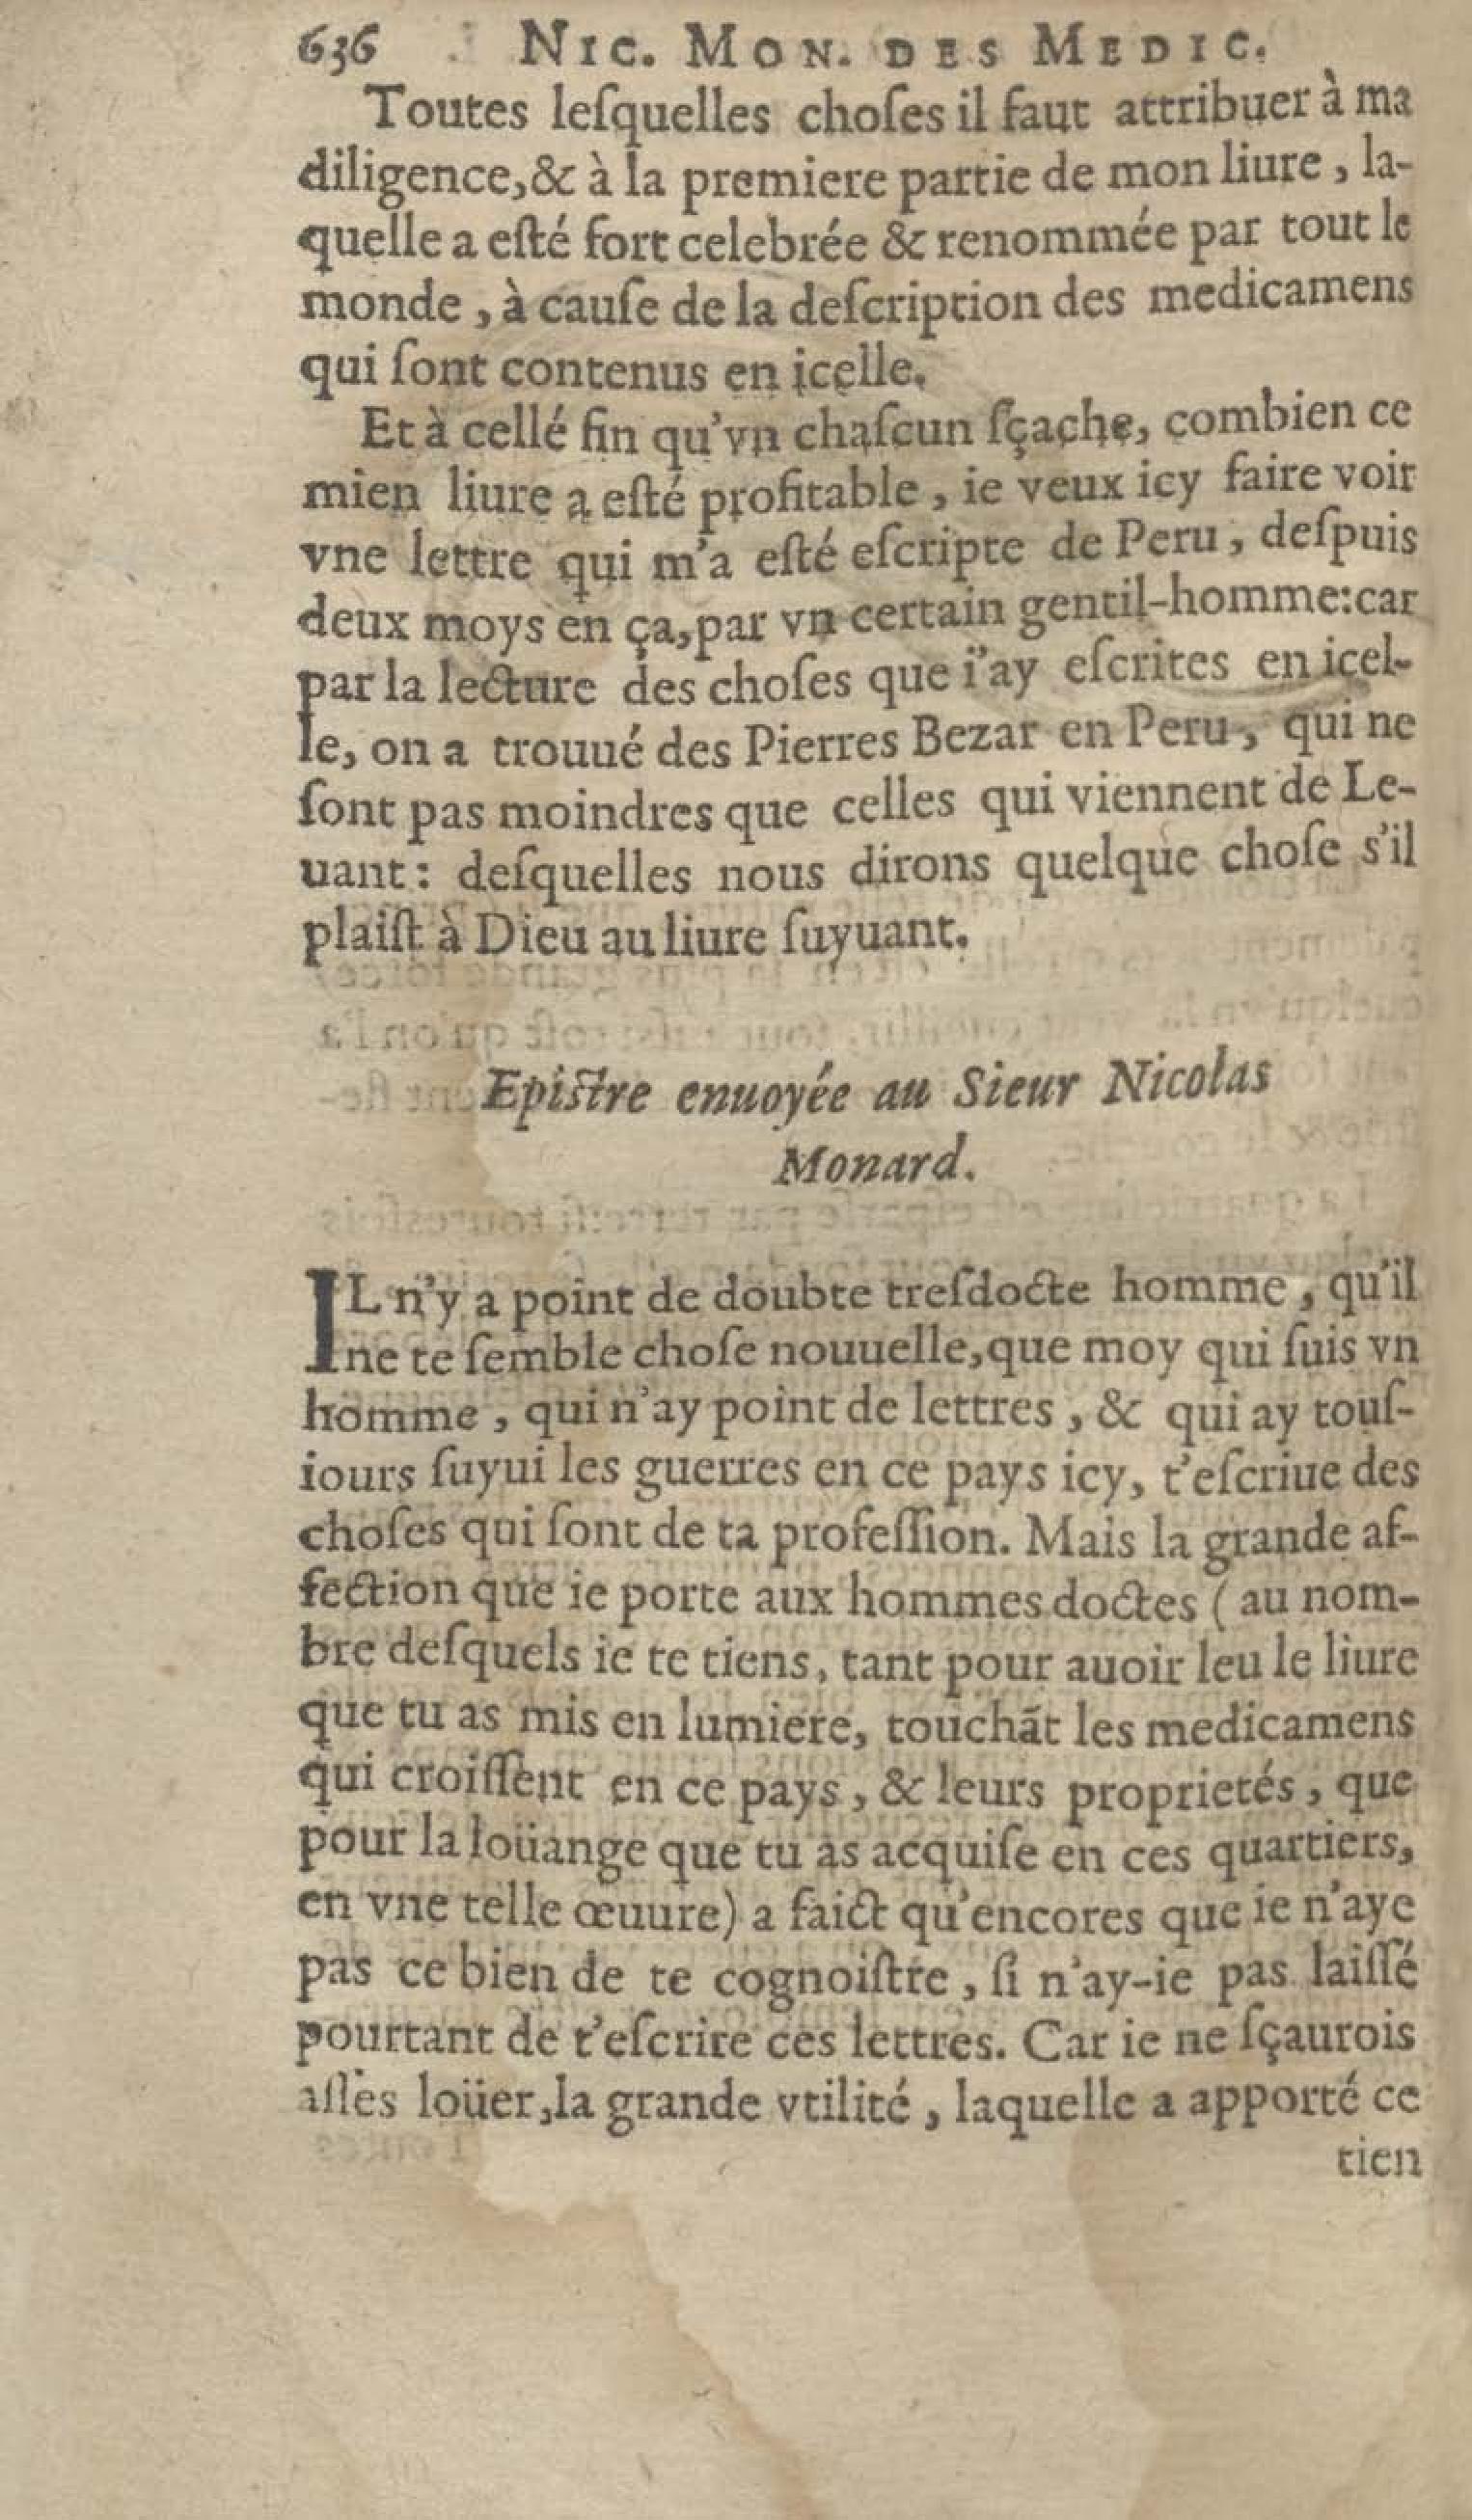 636 NIC. MON. DES MEDIC.
Toutes leſquelles choſes il faut attribuer à ma
diligence,& à la premiere partie de mon liure, la-
quelle a eſté fort celebrée & renommée par tout le
monde, à cauſe de la deſcription des medicamens
qui ſont contenus en icelle.
Et à cellé fin qu'vn chaſcun ſçache, combien ce
mien liure a eſté profitable, ie veux icy faire voir
vne lettre qui m'a eſté eſcripte de Peru, deſpuis
deux moys en ça,par vn certain gentil-homme:car
par la lecture des choſes que i'ay eſcrites en icel-
le, on a trouué des Pierres Bezar en Peru, qui ne
ſont pas moindres que celles qui viennent de Le-
uant: deſquelles nous dirons quelque choſe s'il
plaiſt à Dieu au liure ſuyuant.
Epiſtre enuoyée au Sieur Nicolas
Monard.
IL n'y a point de doubte treſdocte homme, qu'il
ne te ſemble choſe nouuelle,que moy qui ſuis vn
homme, qui n'ay point de lettres, & qui ay touſ-
iours ſuyui les guerres en ce pays icy, t'eſcriue des
choſes qui ſont de ta profeſſion. Mais la grande af-
fection que ie porte aux hommes doctes (au nom-
bre deſquels ie te tiens, tant pour auoir leu le liure
que tu as mis en lumiere, touchãt les medicamens
qui croiſſent en ce pays, & leurs proprietés, que
pour la loüange que tu as acquiſe en ces quartiers,
en vne telle œuure) a faict qu'encores que ie n'aye
pas ce bien de te cognoiſtre, ſi n'ay-ie pas laiſſé
pourtant de t'eſcrire ces lettres. Car ie ne ſçaurois
aſſes loüer,la grande vtilité, laquelle a apporté ce
tien